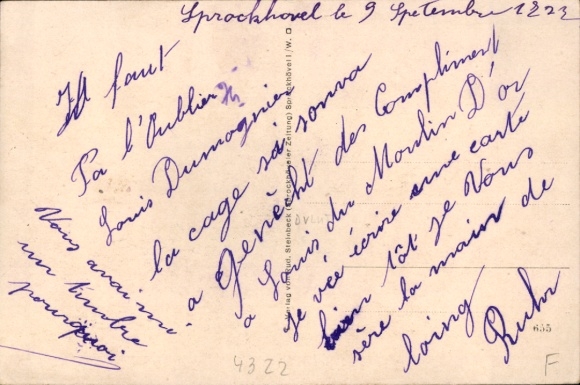 Sprockhovel le 9 Spetembre 1923
Il faut
Pa l'Oublier
Louis Dumagnier
la cage sai sonva
a Genècht des Compliment
a Louis du Moulin D'or
Je véé écrire une carte
bien tôt Je Vous
sère la main de
loing
Ruhr
Vous avai mi
un timbre
pourquoi
Verlag von Rud. Steinbeck (Sprockhöveler Zeitung) Sprockhövel i/W.
635
4322
F